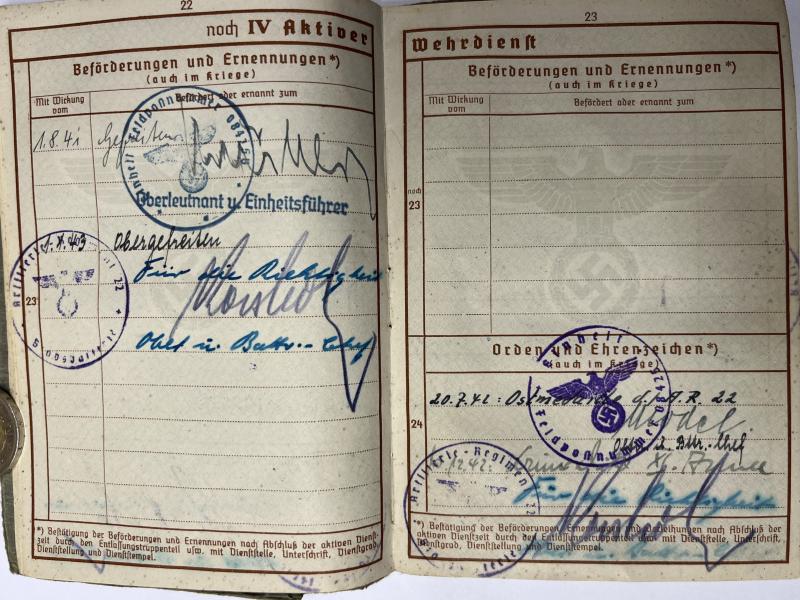 22
noch IV Aktiver
Beförderungen und Ernennungen*)
(auch im Kriege)
Mit Wirkung vom
Befördert oder ernannt zum
1.8.41 Gefreiten
Einheit Feldpostnummer
Oberleutnant u. Einheitsführer
1.X.43 Obergefreiten
Artillerie 22
Für die Richtigkeit
23
Oblt u. Battr.-Chef
*) Bestätigung der Beförderungen und Ernennungen nach Abschluß der aktiven Dienst-
zeit durch den Entlassungstruppenteil usw. mit Dienststelle, Unterschrift, Dienstgrad,
Dienststellung und Dienststempel.
23
Wehrdienst
Beförderungen und Ernennungen*)
(auch im Kriege)
Mit Wirkung vom
Befördert oder ernannt zum
noch
23
Orden und Ehrenzeichen*)
(auch im Kriege)
Einheit
Feldpostnummer
20.7.42: Ostmedaille d./ A.R. 22
24
u. Bttr.-Chef
Artillerie-Regiment
12.42:
Für die Richtigkeit
*) Bestätigung der Beförderungen, Ernennungen und Verleihungen nach Abschluß der
aktiven Dienstzeit durch den Entlassungstruppenteil usw. mit Dienststelle, Unterschrift,
Dienstgrad, Dienststellung und Dienststempel.